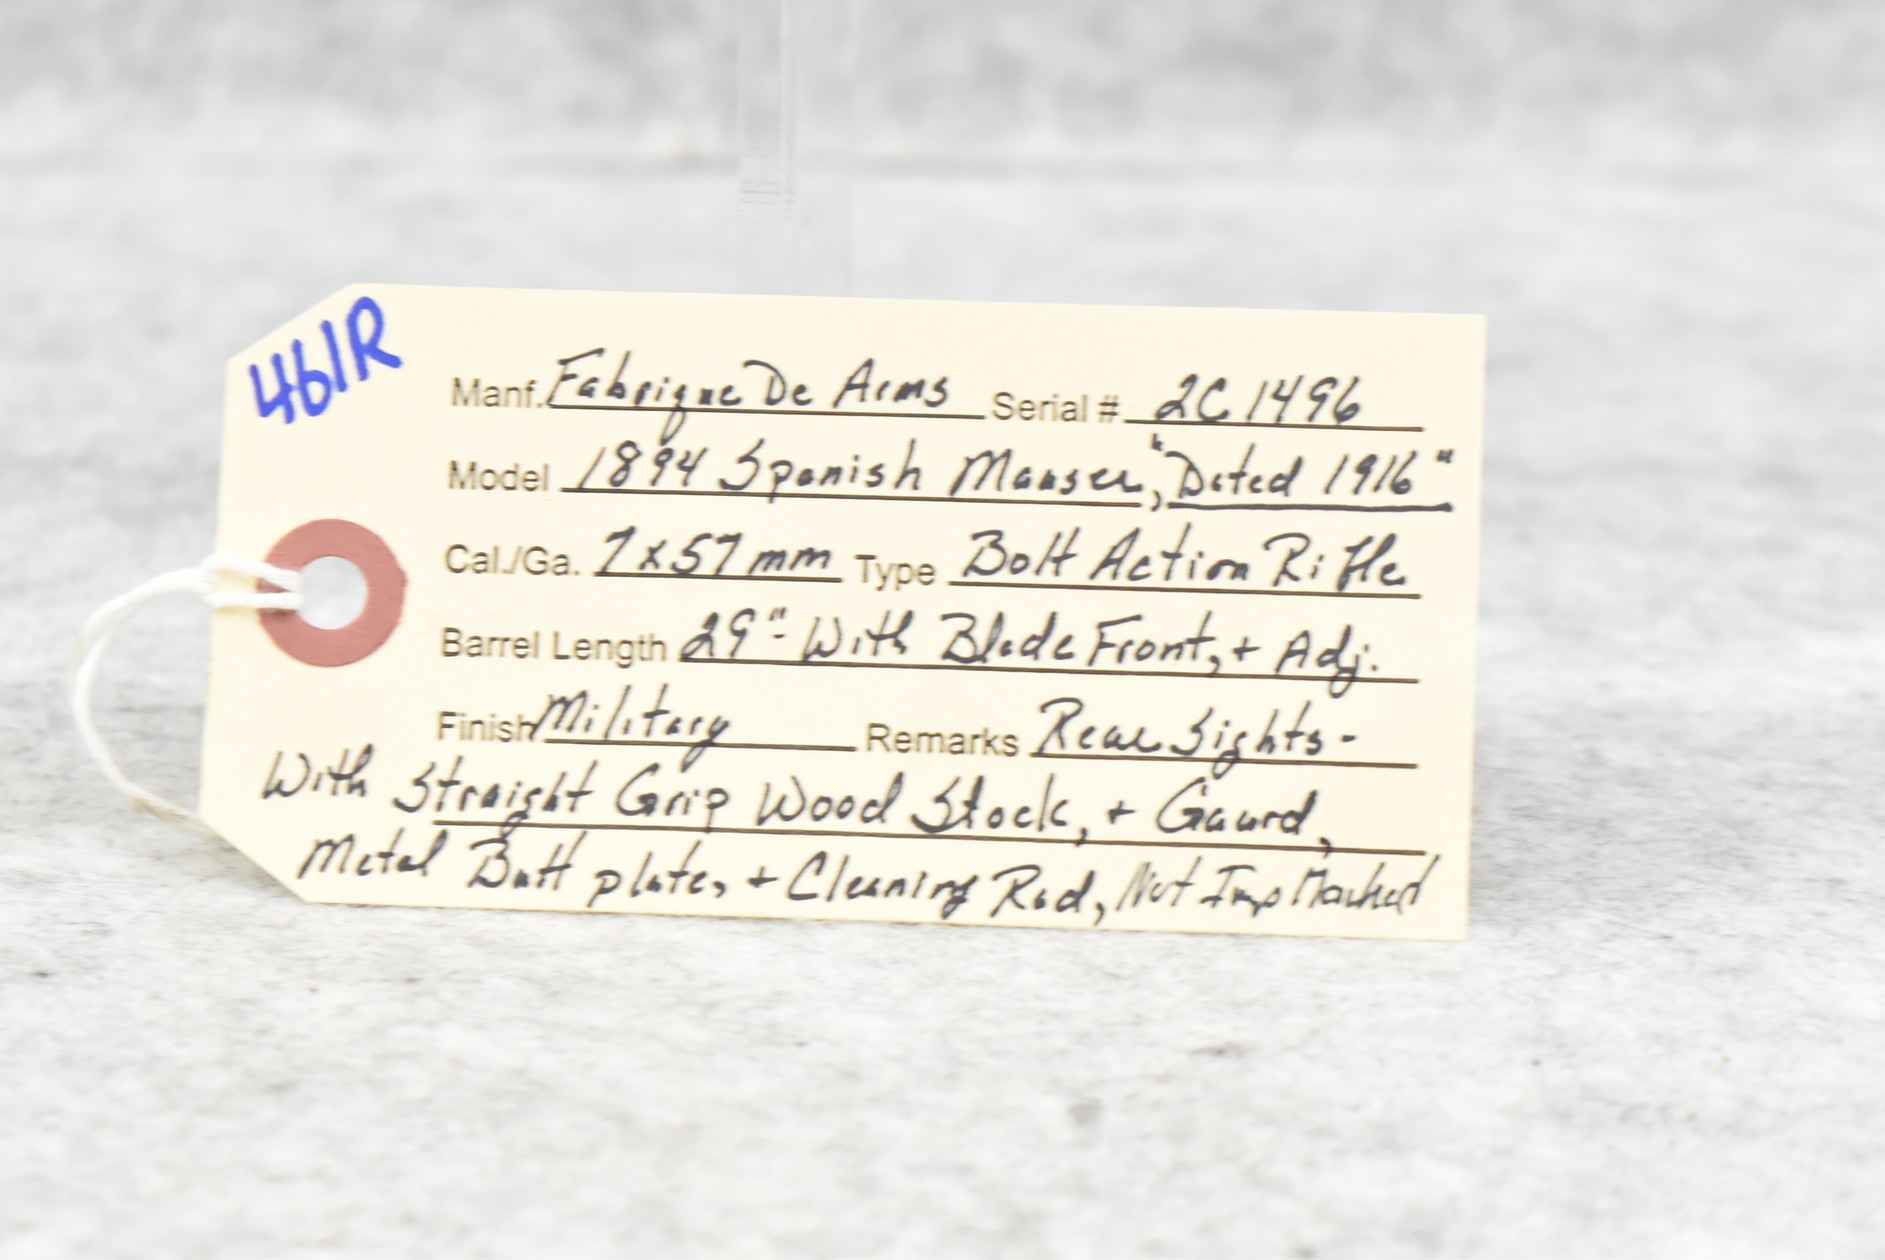 461R
Manf. Fabrique De Arms Serial # 2C1496
Model 1894 Spanish Mauser, "Dated 1916"
Cal./Ga. 7x57mm Type Bolt Action Rifle
Barrel Length 29"- With Blade Front, + Adj.
Finish Military Remarks Rear Sights-
With Straight Grip Wood Stock, + Gaurd,
Metal Butt plate, + Cleaning Rod, Not Imp Marked